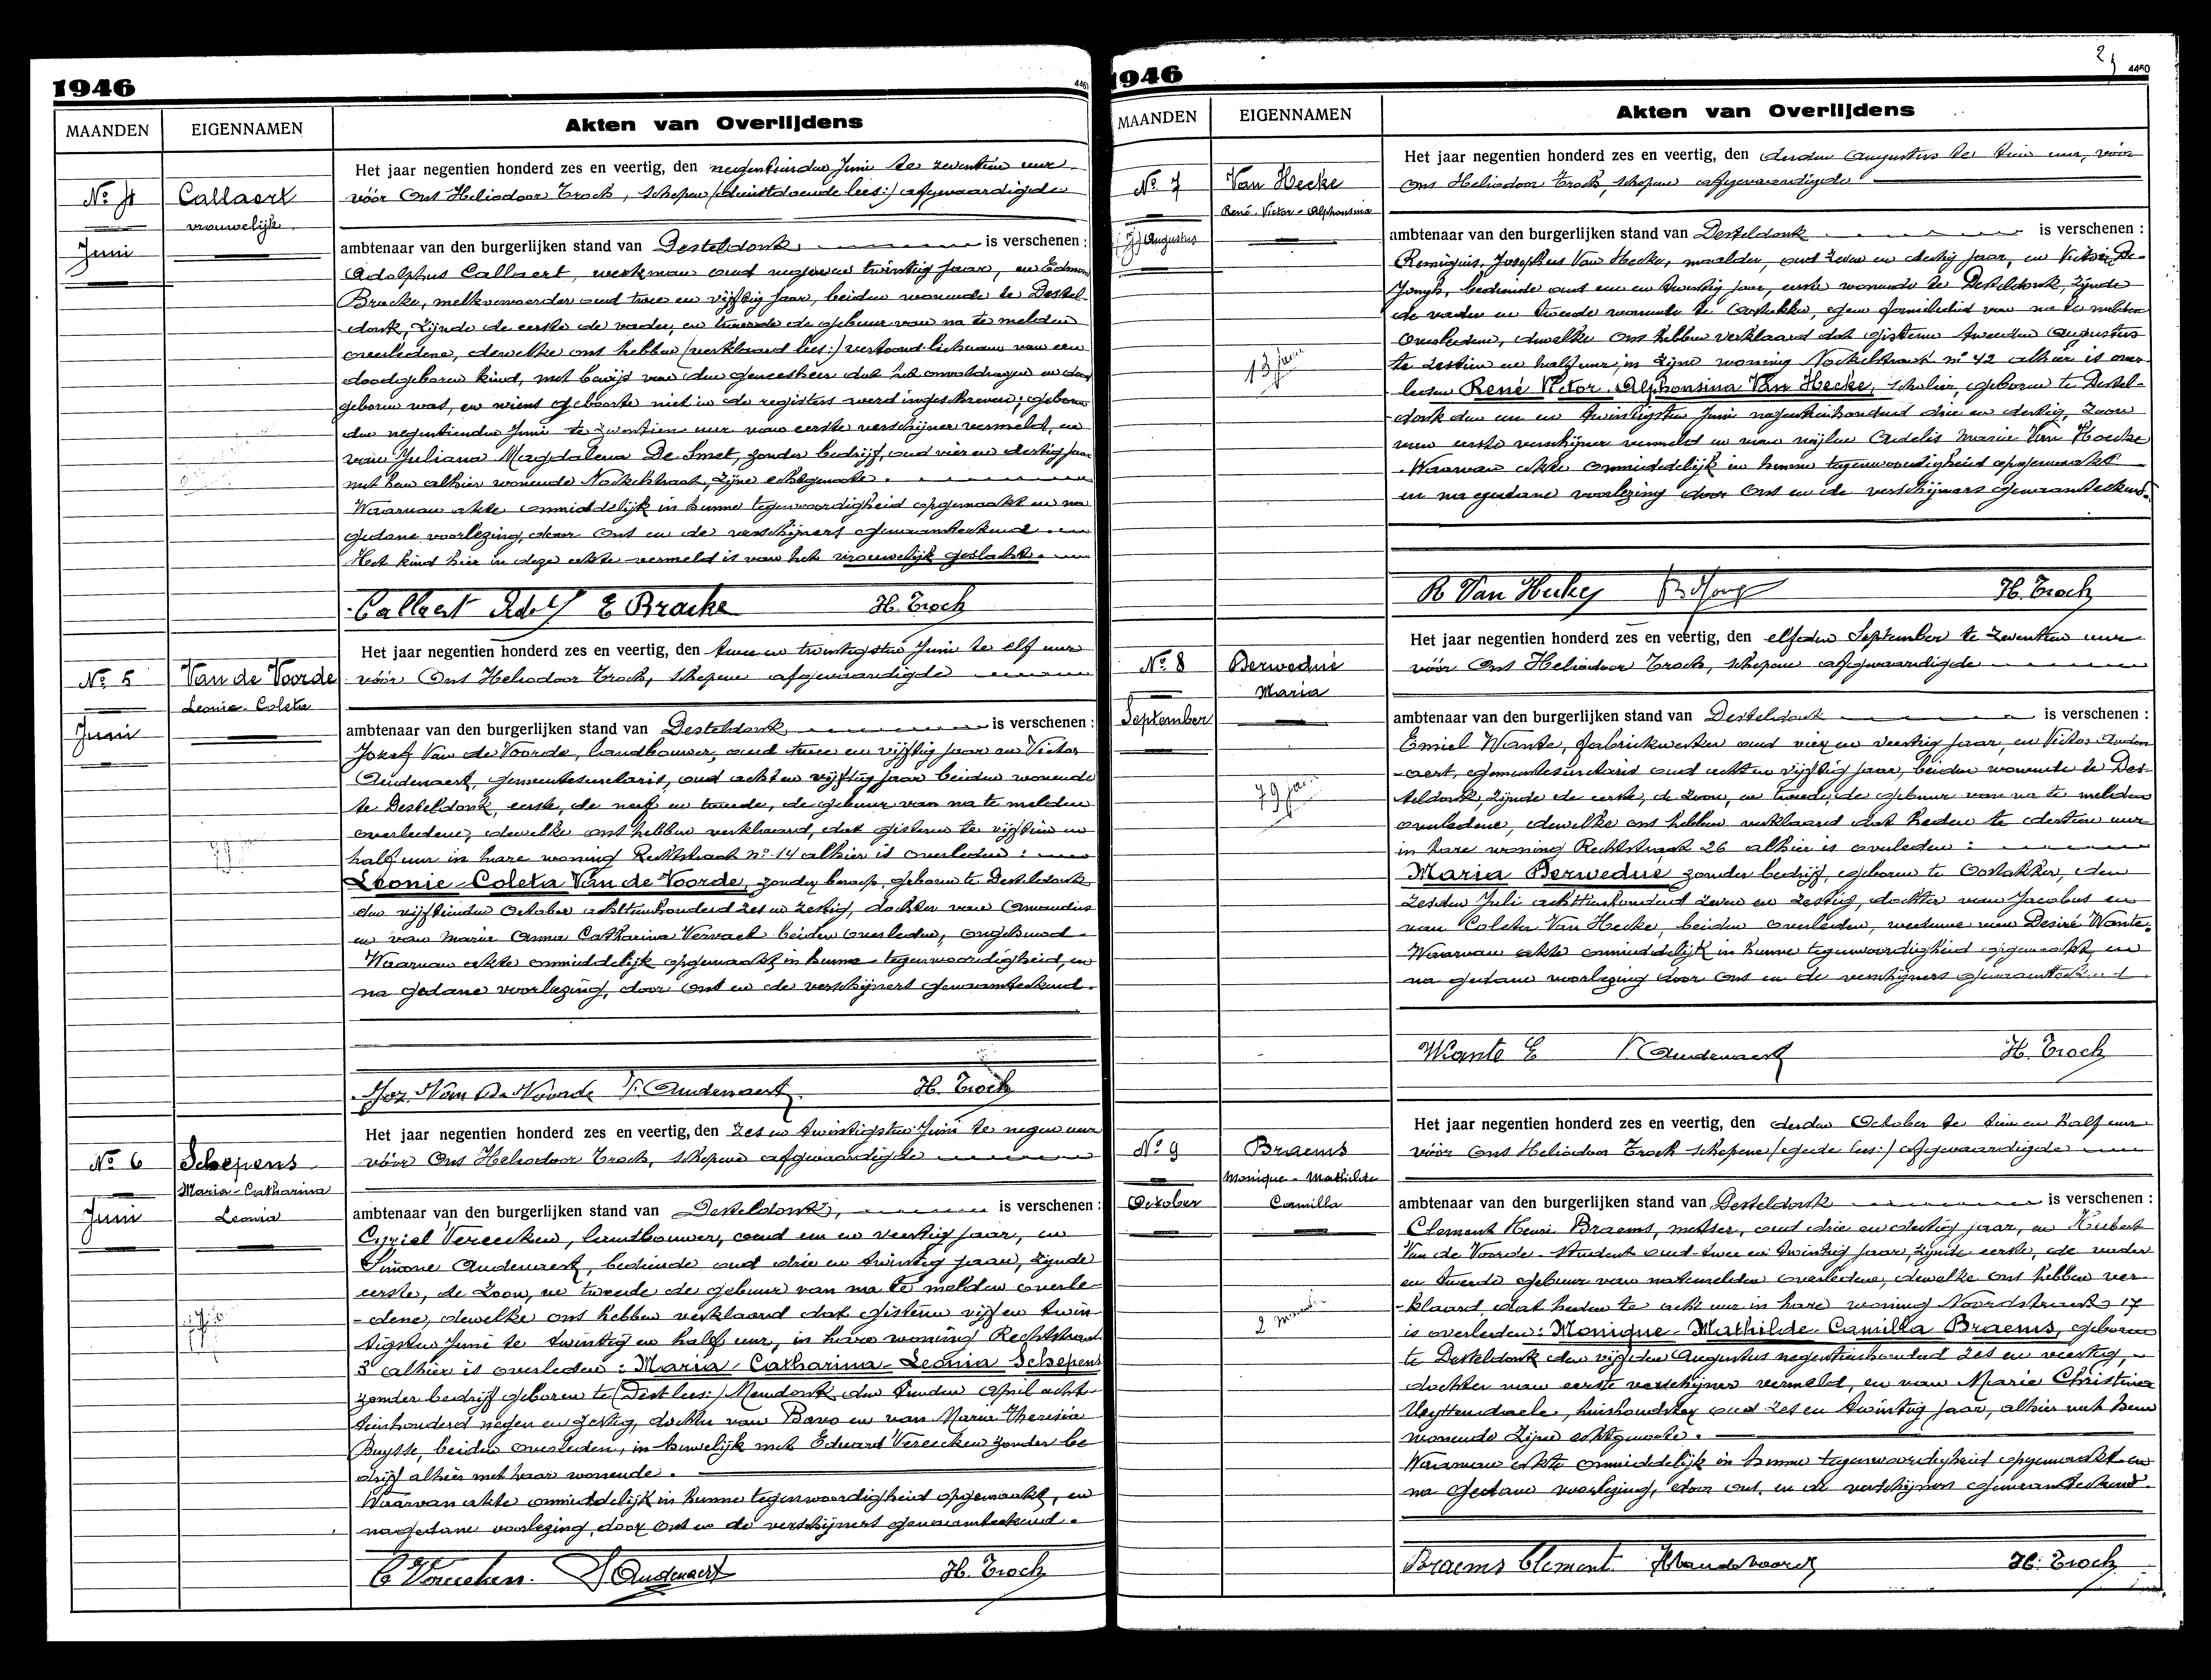 1946
MAANDEN EIGENNAMEN Akten van Overlijdens
Nº 4
Juni
Callaert
vrouwelijk
Het jaar negentien honderd zes en veertig, den negentienden Juni te zeventien uur
vóór Ons Heliodoor Troch, schepen (dienstdoende lees:) afgevaardigde
ambtenaar van den burgerlijken stand van Desteldonk is verschenen :
Adolphus Callaert, werkman oud negen en twintig jaar, en Edmond
Bracke, melkvoerder oud twee en vijftig jaar, beiden wonende te Destel-
donk, zijnde de eerste de vader, en tweede de gebuur van na te melden
overledene, dewelke ons hebben (verklaard lees:) vertoond lichaam van een
doodgeboren kind, met bewijs van den geneesheer dat het onvoldragen en dood
geboren was, en wiens geboorte niet in de registers werd ingeschreven; geboren
den negentienden Juni te zeventien uur van eerste verschijner vermeld, en
van Juliana Magdalena De Smet, zonder bedrijf, oud vier en dertig jaar
met hem alhier wonende Nockelstraat, zijne echtgenoote.
Waarvan akte onmiddelijk in hunne tegenwoordigheid opgemaakt en na
gedane voorlezing, door Ons en de verschijners genaamteekend
Het kind hier in deze akte vermeld is van het vrouwelijk geslacht.
Callaert Adolf E Bracke H. Troch
Nº 5
Juni
Van de Voorde
Leonie-Coleta
Het jaar negentien honderd zes en veertig, den twee en twintigsten Juni te elf uur
vóór Ons Heliodoor Troch, schepene afgevaardigde
ambtenaar van den burgerlijken stand van Desteldonk is verschenen :
Jozef Van de Voorde, landbouwer, oud twee en vijftig jaar en Victor
Audenaert, gemeentesecretaris, oud acht en vijftig jaar beiden wonende
te Desteldonk, eerste, de neef en tweede, de gebuur van na te melden
overledene, dewelke ons hebben verklaard, dat gisteren te vijftien en
half uur in hare woning Rechtstraat nº 14 alhier is overleden :
Leonie-Coleta Van de Voorde, zonder beroep, geboren te Desteldonk
den vijftienden October achttienhonderd zes en zestig, dochter van Amandus
en van Marie Anna Catharina Vervaet beiden overleden, ongehuwd.
Waarvan akte onmiddelijk opgemaakt in hunne tegenwoordigheid, en
na gedane voorlezing, door Ons en de verschijners genaamteekend.
Joz. Van De Voorde V. Audenaert H. Troch
Nº 6
Juni
Schepens
Maria-Catharina
Leonia
Het jaar negentien honderd zes en veertig, den zes en twintigsten Juni te negen uur
vóór Ons Heliodoor Troch, schepene afgevaardigde
ambtenaar van den burgerlijken stand van Desteldonk, is verschenen :
Cyriel Vereecken, landbouwer, oud een en veertig jaar, en
Simone Audenaert, bediende oud drie en twintig jaar, zijnde
eerste, de zoon, en tweede de gebuur van na te melden overle-
-dene, dewelke ons hebben verklaard dat gisteren vijf en twin-
tigsten Juni te twintig en half uur, in hare woning Rechtstraat
3 alhier is overleden : Maria-Catharina-Leonia Schepens
zonder bedrijf geboren te (Dest lees:) Mendonk den tienden April acht-
tienhonderd negen en zestig, dochter van Bavo en van Marie Theresia
Buysse, beiden overleden, in huwelijk met Eduard Vereecken zonder be
drijf alhier met haar wonende.
Waarvan akte onmiddelijk in hunne tegenwoordigheid opgemaakt, en
na gedane voorlezing, door Ons en de verschijners genaamteekend.
C Vereecken. S Audenaert H. Troch
1946
4460
MAANDEN EIGENNAMEN Akten van Overlijdens
Nº 7
Augustus
Van Hecke
René-Victor-Alphonsina
13 jaar
Het jaar negentien honderd zes en veertig, den derden Augustus te tien uur, vóór
Ons Heliodoor Troch, schepene afgevaardigde
ambtenaar van den burgerlijken stand van Desteldonk is verschenen :
Remigius, Josephus Van Hecke, maalder, oud zeven en dertig jaar, en Victor De-
Jongh, bediende oud een en twintig jaar, eerste wonende te Desteldonk, zijnde
de vader en tweede wonende te Oostakker, geen familielid van na te melden
overledene, dewelke Ons hebben verklaard dat gisteren tweeden Augustus
te zestien en half uur, in zijne woning Nockelstraat nº 42 alhier is over-
leden René Victor-Alphonsina Van Hecke, scholier, geboren te Destel-
donk den een en twintigsten Juni negentienhonderd drie en dertig, zoon
van eerste verschijner vermeld en van wijlen Odelis Marie Van Hoecke
Waarvan akte onmiddelijk in hunne tegenwoordigheid opgemaakt
en na gedane voorlezing door Ons en de verschijners genaamteekend.
R Van Hecke H. Troch
Nº 8
September
Derwedué
Maria
79 jaar
Het jaar negentien honderd zes en veertig, den elfden September te zeventien uur
vóór Ons Heliodoor Troch, schepene afgevaardigde
ambtenaar van den burgerlijken stand van Desteldonk is verschenen :
Emiel Wante, fabriekwerker oud vier en veertig jaar, en Victor Auden
-aert, gemeentesecretaris oud acht en vijftig jaar, beiden wonende te Des-
teldonk, zijnde de eerste, de zoon, en tweede, de gebuur van na te melden
overledene, dewelke ons hebben verklaard dat heden te dertien uur
in hare woning Rechtstraat 26 alhier is overleden :
Maria Derwedué zonder bedrijf, geboren te Oostakker, den
zesden Juli achttienhonderd zeven en zestig, dochter van Jacobus en
van Coleta Van Hecke, beiden overleden, weduwe van Desiré Wante.
Waarvan akte onmiddelijk in hunne tegenwoordigheid opgemaakt, en
na gedane voorlezing door Ons en de verschijners genaamteekend.
Wante E V. Audenaert H. Troch
Nº 9
October
Braems
Monique-Mathilde
Camilla
2 maanden
Het jaar negentien honderd zes en veertig, den derden October te tien en half uur
vóór Ons Heliodoor Troch schepene (gede lees:) afgevaardigde
ambtenaar van den burgerlijken stand van Desteldonk is verschenen :
Clement Henri Braems, metser, oud drie en dertig jaar, en Hubert
Van de Voorde-student oud-twee en twintig jaar, zijnde eerste, de vader
en tweede gebuur van natemelden overledene, dewelke ons hebben ver-
-klaard, dat heden te acht uur in hare woning Noordstraat 17
is overleden: Monique-Mathilde-Camilla Braems, geboren
te Desteldonk den vijfden Augustus negentienhonderd zes en veertig,
dochter van eerste verschijner vermeld, en van Marie Christina
Uyttendaele, huishoudster oud zes en twintig jaar, alhier met hem
wonende zijne echtgenoote.
Waarvan akte onmiddelijk in hunne tegenwoordigheid opgemaakt en
na gedane voorlezing, door ons, en de verschijners genaamteekend.
Braems Clement H. Troch